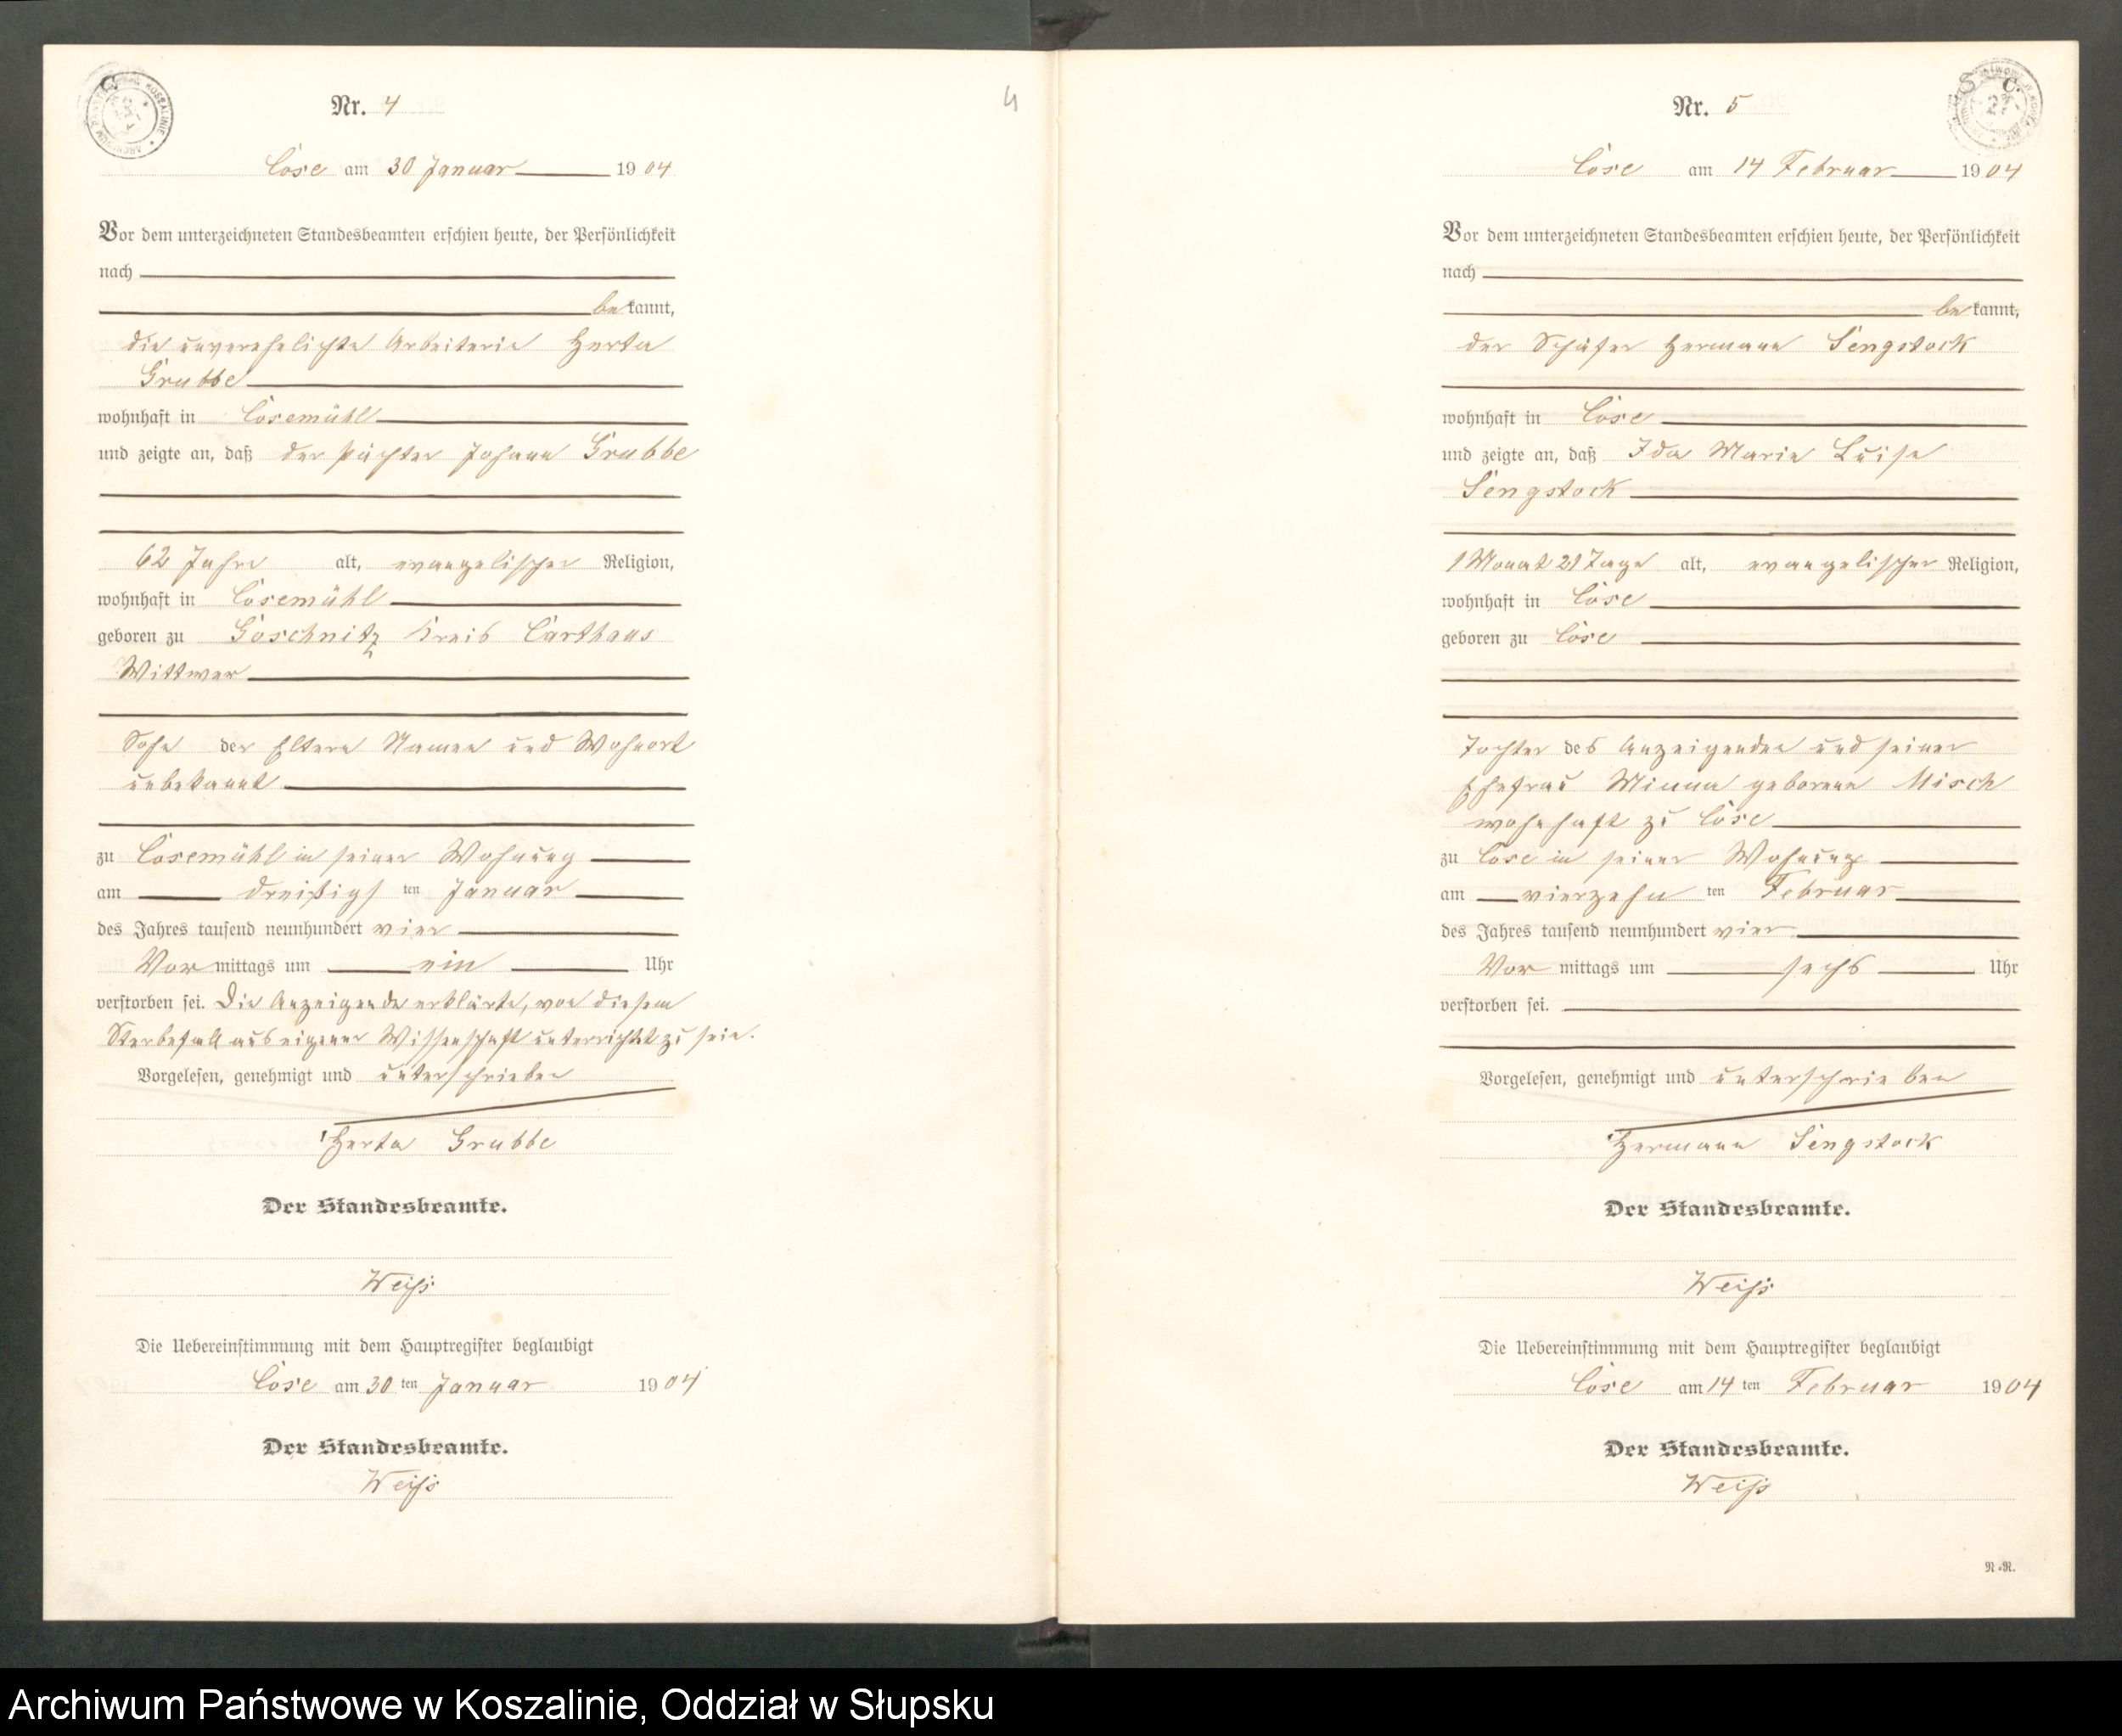 Nr. 4
4
Cose am 30 Januar 1904
Vor dem unterzeichneten Standesbeamten erschien heute, der Persönlichkeit
nach
bekannt,
die unverehelichte Arbeiterin Herta
Grubbe
wohnhaft in Cosemühl
und zeigte an, daß der Pächter Johann Grubbe
62 Jahre alt, evangelischer Religion,
wohnhaft in Cosemühl
geboren zu Goschnitz Kreis Carthaus
Wittwer
Sohn der Eltern Namen und Wohnort
unbekannt
zu Cosemühl in seiner Wohnung
am dreißigsten Januar
des Jahres tausend neunhundert vier
Vormittags um ein Uhr
verstorben sei. Die Anzeigende erklärte, von diesem
Sterbefall aus eigener Wissenschaft unterrichtet zu sein.
Vorgelesen, genehmigt und unterschrieben
Herta Grubbe
Der Standesbeamte.
Weiß
Die Uebereinstimmung mit dem Hauptregister beglaubigt
Cose am 30ten Januar 1904
Der Standesbeamte.
Weiß
Nr. 5
Cose am 14 Februar 1904
Vor dem unterzeichneten Standesbeamten erschien heute, der Persönlichkeit
nach
bekannt,
der Schäfer Hermann Sengstock
wohnhaft in Cose
und zeigte an, daß Ida Marie Luise
Sengstock
1 Monat 21 Tage alt, evangelischer Religion,
wohnhaft in Cose
geboren zu Cose
Tochter des Anzeigenden und seiner
Ehefrau Minna geborene Misch
wohnhaft zu Cose
zu Cose in seiner Wohnung
am vierzehnten Februar
des Jahres tausend neunhundert vier
Vormittags um sechs Uhr
verstorben sei.
Vorgelesen, genehmigt und unterschrieben
Hermann Sengstock
Der Standesbeamte.
Weiß
Die Uebereinstimmung mit dem Hauptregister beglaubigt
Cose am 14ten Februar 1904
Der Standesbeamte.
Weiß
N.=R.
Archiwum Państwowe w Koszalinie, Oddział w Słupsku